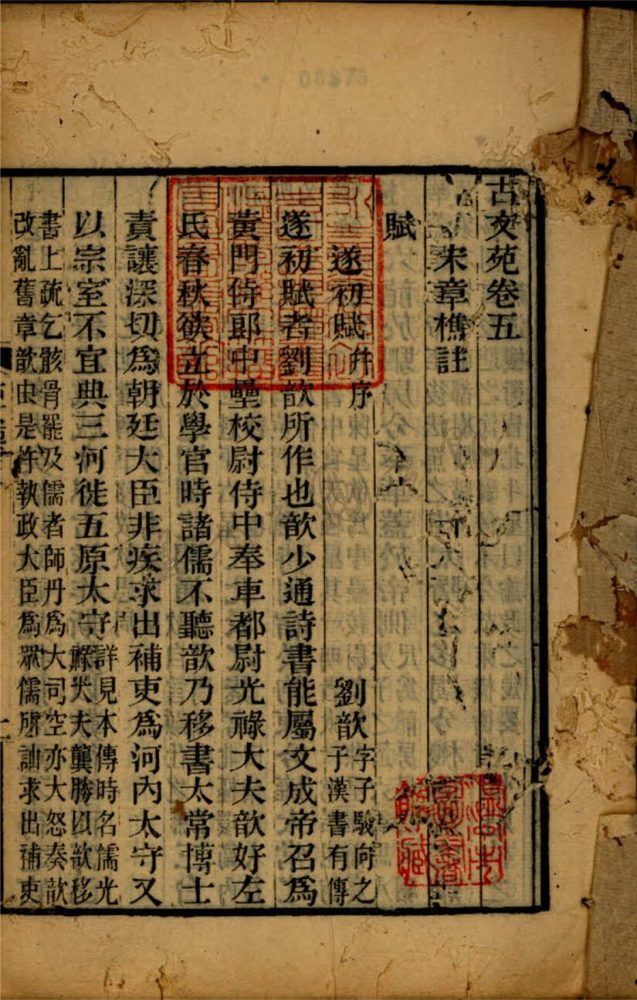 古文苑卷五
宋章樵註
賦
遂初賦并序 劉歆字子駿向之子漢書有傳
遂初賦者劉歆所作也歆少通詩書能屬文成帝召為
黃門侍郎中壘校尉侍中奉車都尉光祿大夫歆好左
氏春秋欲立於學官時諸儒不聽歆乃移書太常博士
責讓深切為朝廷大臣非疾求出補吏為河內太守又
以宗室不宜典三河徙五原太守詳見本傳時名儒光祿大夫龔勝以歆移
書上疏乞骸骨罷及儒者師丹為大司空亦大怒奏歆改亂舊章歆由是忤執政大臣為眾儒所訕求出補吏